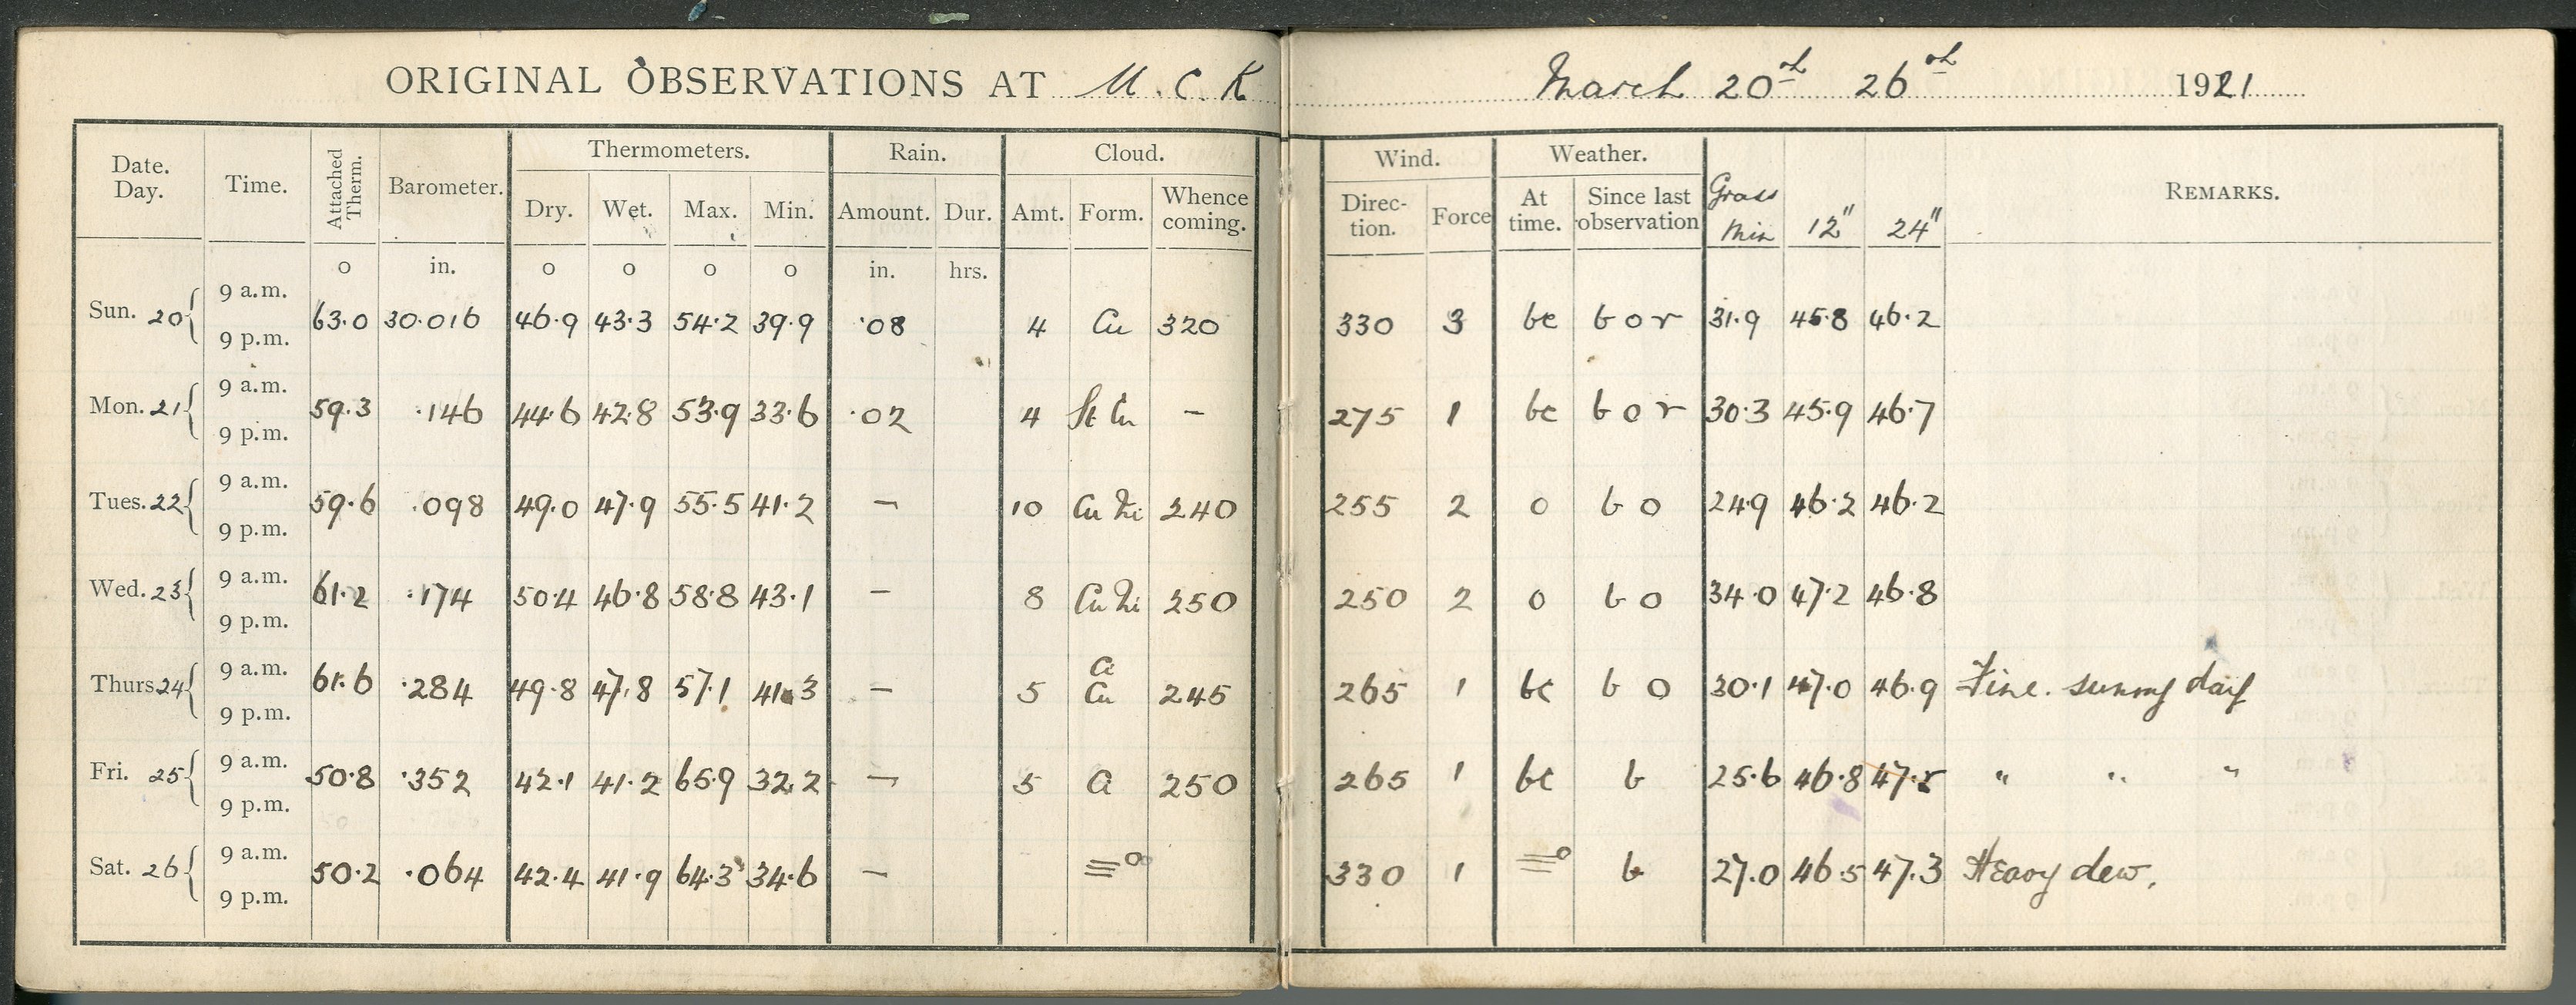 ORIGINAL OBSERVATIONS AT M. C. K March 20th 26th 1921
Thermometers. Rain. Cloud. Wind. Weather.
Date. Day. Time. Attached Therm. Barometer. Dry. Wet. Max. Min. Amount. Dur. Amt. Form. Whence coming. Direc- tion. Force At time. Since last observation Grass Min 12" 24" REMARKS.
o in. o o o o in. hrs.
9 a.m.
Sun. 20 63.0 30.016 46.9 43.3 54.2 39.9 .08 4 Cu 320 330 3 bc b o r 31.9 45.8 46.2
9 p.m.
9 a.m.
Mon. 21 59.3 .146 44.6 42.8 53.9 33.6 .02 4 St Cu – 275 1 bc b o r 30.3 45.9 46.7
9 p.m.
9 a.m.
Tues. 22 59.6 .098 49.0 47.9 55.5 41.2 – 10 Cu Ni 240 255 2 o b o 24.9 46.2 46.2
9 p.m.
9 a.m.
Wed. 23 61.2 .174 50.4 46.8 58.8 43.1 – 8 Cu Ni 250 250 2 o b o 34.0 47.2 46.8
9 p.m.
9 a.m.
Thurs 24 61.6 .284 49.8 47.8 57.1 41.3 – 5 Ci Cu 245 265 1 bc b o 30.1 47.0 46.9 Fine. sunny day
9 p.m.
9 a.m.
Fri. 25 50.8 .352 42.1 41.2 65.9 32.2 – 5 Ci 250 265 1 bc b 25.6 46.8 " " "
9 p.m.
9 a.m.
Sat. 26 50.2 .064 42.4 41.9 64.3 34.6 – ≡° 330 1 ≡° b 27.0 46.5 47.3 Heavy dew.
9 p.m.